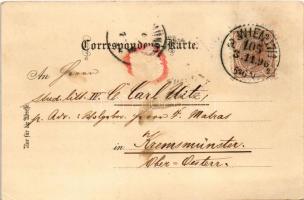 Correspondenz-Karte.
WIEN
An Herrn
Stud. litt. II. C. Carl Uitz,
p. Adr. Herrn F. Matras
in Kremsmünster.
Ober-Oesterr.
Nur für die Adresse.